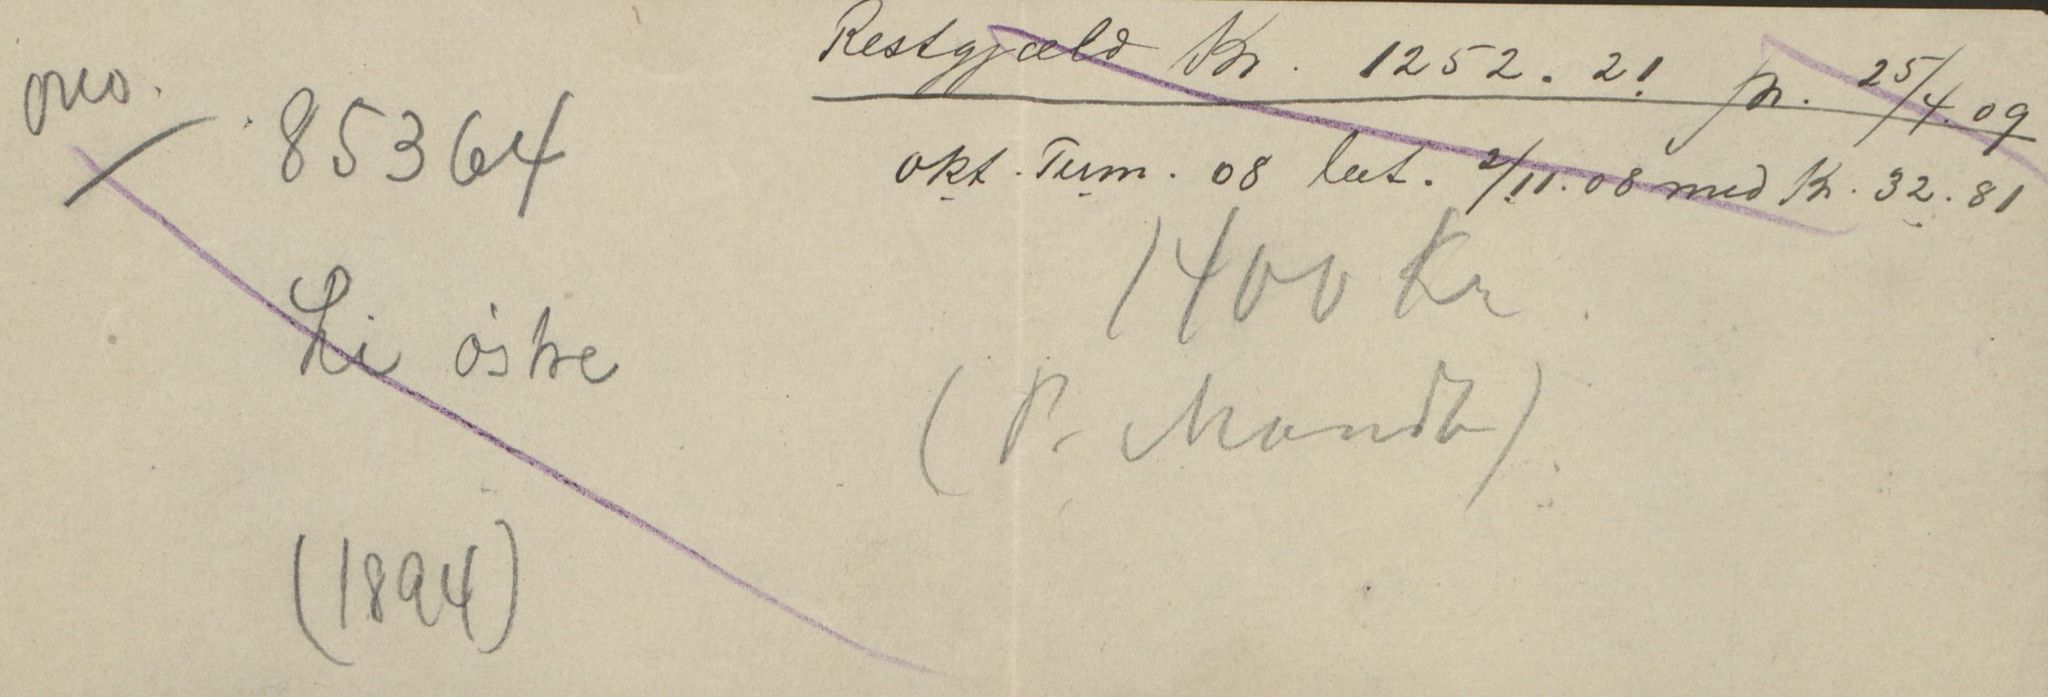 Restgjæld Kr. 1252.21 pr. 25/4.09
okt. Term. 08 bet. 2/11.08 med Kr. 32.81
85364
1400 Kr
Li östre
(P. Mandt)
(1894)